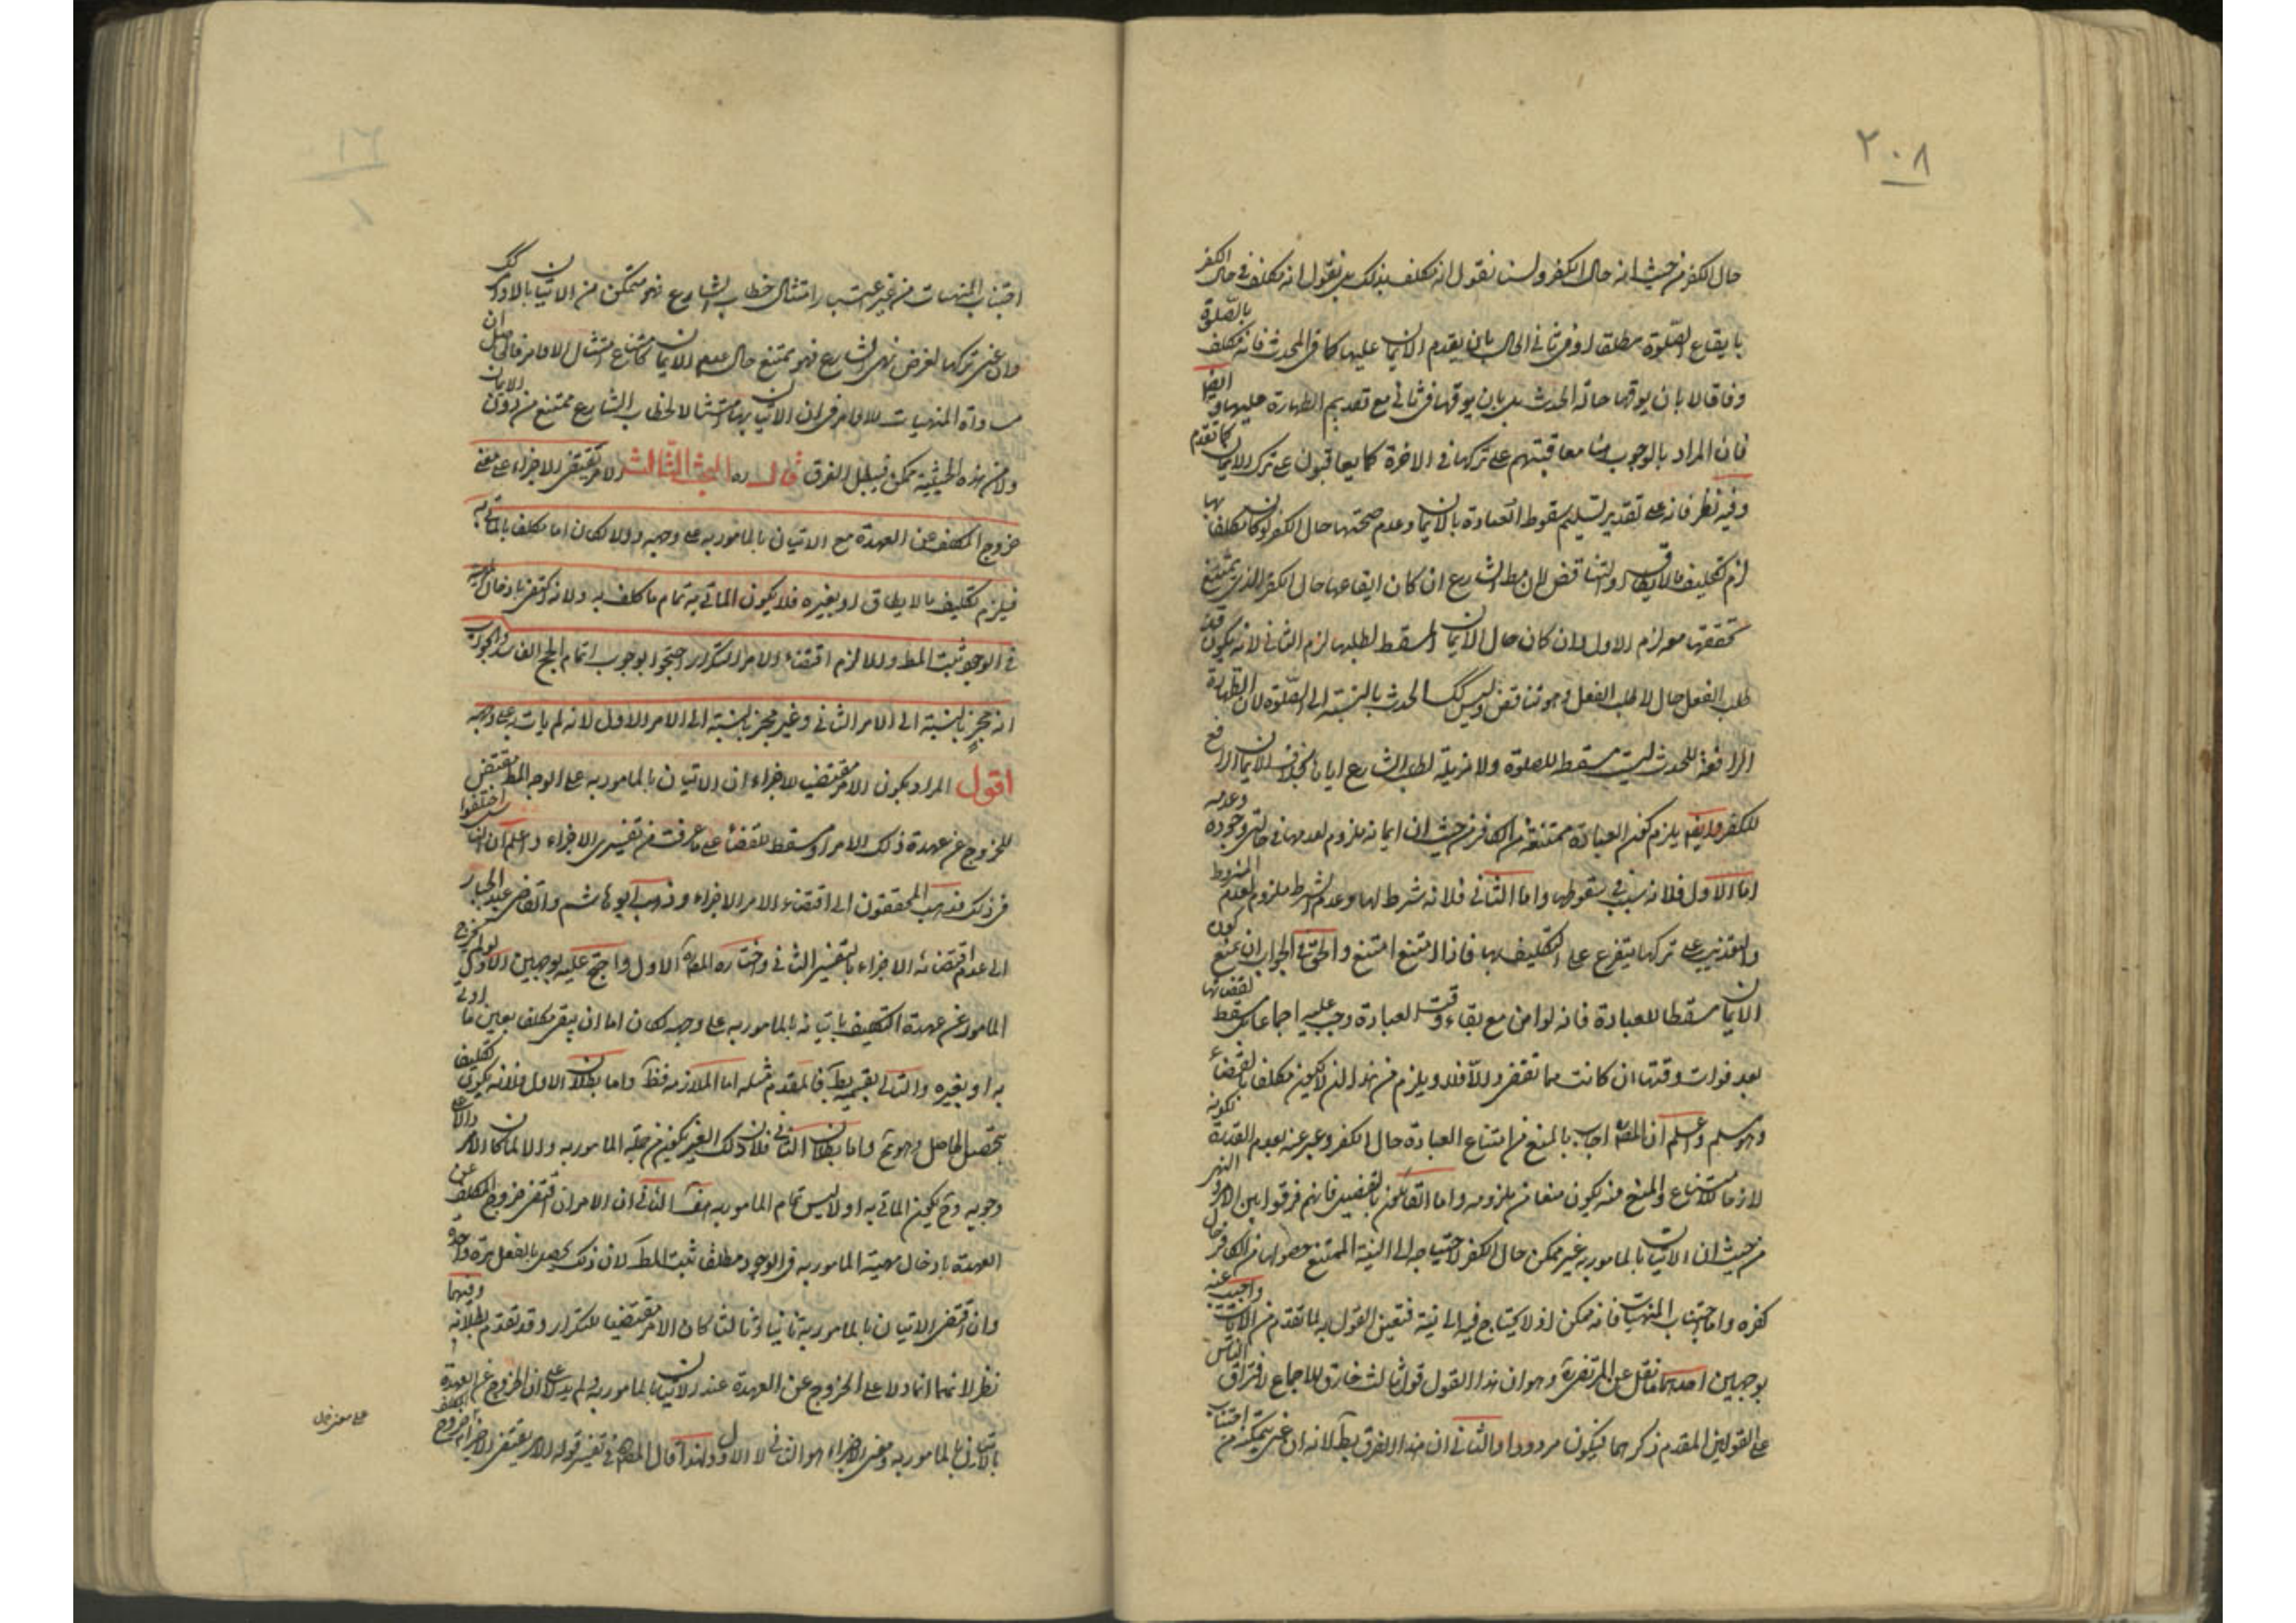 ٢٠٨
حال الكفر من حيث انه حال الكفر ولسنا نقول انه مكلف بذلك بل نقول انه مكلف في حال الكفر
بايقاع الصلوة مطلقا او في ثاني الحال بان يقدم الايمان عليها كما في المحدث فانه مكلف بالصلوة
وفاقا لا بان يوقعها حالة الحدث بل بان يوقعها في ثاني مع تقديم الطهارة عليها وايضا
فان المراد بالوجوب هنا معاقبتهم على تركها في الاخرة كما يعاقبون على ترك الايمان كما تقدم
وفيه نظر فانه على تقدير تسليم سقوط العبادة بالايمان وعدم صحتها حال الكفر لو كان مكلفا بها
لزم تكليف ما لا يطاق او التناقض لان مط الشارع ان كان ايقاعها حال الكفر الذي يمتنع
تحققها معه لزم الاول وان كان حال الايمان المسقط لطلبها لزم الثاني لانه يكون قد
طلب الفعل حال لا طلب الفعل وهو تناقض وليس كك الحدث بالنسبة الى الصلوة لان الطهارة
الرافعة للحدث ليست مسقطة للصلوة ولا مزيلة لطلب الشارع اياها بخلاف الايمان الرافع
للكفر وايضا يلزم كون العبادة ممتنعة من الكافر من حيث ان ايمانه ملزوم لعدمها في حالتي وجوده وعدمه
اما الاول فلانه سبب في سقوطها واما الثاني فلانه شرط لها وعدم الشرط ملزوم لعدم المشروط
والتعذيب على تركها يتفرع على التكليف بها فاذا امتنع امتنع والحق في الجواب ان نمنع كون
الايمان مسقطا للعبادة فانه لو امن مع بقاء وقت العبادة وجب عليه اجماعا بل يسقط لقضائها
بعد فوات وقتها ان كانت مما تقضى والا فلا ويلزم من هذا ان لا يكون مكلفا بالقضاء
وهو مسلم واعلم ان المص اجاب بالمنع من امتناع العبادة حال الكفر وعبر عنه بعدم القدرة لكونه
لازما للامتناع والمنع منه يكون منعا من ملزومه واما القائلون بالتفصيل فانهم فرقوا بين الامر والنهي
من حيث ان الاتيان بالمامور به غير ممكن حال الكفر لاحتياجه الى النية الممتنع حصولها من الكافر حال
كفره واما اجتناب المنهيات فانه ممكن اذ لا يحتاج فيه الى نية فتعين القول به لما تقدم من الايات واجيب عنه
بوجهين احدهما ما نقل عن المرتضى وهو ان هذا القول قول ثالث خارق للاجماع لافتراق الناس
على القولين المقدم ذكرهما فيكون مردودا والثاني ان هذا الفرق بط لانه ان عنى بتمكنه من اجتناب
اجتناب المنهيات من غير اعتبار امتثال خطاب الشارع فهو متمكن من الاتيان بالاوامر كك
وان عنى تركها لغرض نهي الشارع فهو ممتنع حال عدم الايمان كامتناع امتثال الاوامر فالحاصل ان
مساواة المنهيات للاوامر في ان الاتيان بها امتثالا لخطاب الشارع ممتنع من دون الايمان
ولا من هذه الحيثية ممكن فبطل الفرق قال ره البحث الثالث الامر يقتضي الاجزاء على معنى
خروج المكلف عن العهدة مع الاتيان بالمامور به على وجهه والا لكان اما مكلفا بالماتي به
فيلزم تكليف ما لا يطاق او بغيره فلا يكون الماتي به تمام ما كلف به ولانه ان اقتضى ادخال الماهية
في الوجود ثبت المط والا لزم اقتضاء الامر التكرار احتجوا بوجوب اتمام الحج الفاسد والجواب
انه مجز بالنسبة الى الامر الثاني وغير مجز بالنسبة الى الامر الاول لانه لم يات به على وجهه
اقول المراد بكون الامر مقتضيا للاجزاء ان الاتيان بالمامور به على الوجه المط مقتض
للخروج عن عهدة ذلك الامر او مسقط للقضاء على ما عرفت من تفسيري الاجزاء واعلم ان الناس اختلفوا
في ذلك فذهب المحققون الى اقتضاء الامر الاجزاء وذهب ابو هاشم والقاضي عبد الجبار
الى عدم اقتضائه الاجزاء بالتفسير الثاني واختاره المص الاول واحتج عليه بوجهين الاول لو لم يخرج
المامور عن عهدة التكليف باتيانه بالمامور به على وجهه لكان اما ان يبقى مكلفا بعين ما اتى
به او بغيره والتالي بقسميه بط فالمقدم مثله اما الملازمة فظ واما بطلان الاول فلانه يكون تكليفا
بتحصيل الحاصل وهو مح واما بطلان الثاني فلان ذلك الغير يكون من جملة المامور به والا لما كان الامر دالا على
وجوبه وح يكون الماتي به اولا ليس تمام المامور به هف الثاني ان الامر ان اقتضى خروج المكلف عن
العهدة بادخال مهية المامور به في الوجود مطلقا ثبت المط لان ذلك يحصل بالفعل مرة واحدة
وان اقتضى الاتيان بالمامور به ثانيا وثالثا كان الامر مقتضيا للتكرار وقد تقدم بطلانه وفيهما
نظر لانهما انما دلا على الخروج عن العهدة عند الاتيان بالمامور به ولم يدلا على ان الخروج عن العهدة
بالاتيان بالمامور به ومعنى الاجزاء هو الثاني لا الاول ولهذا قال المص في تفسير قوله الامر يقتضي الاجزاء اي خروج المكلف
على معنى